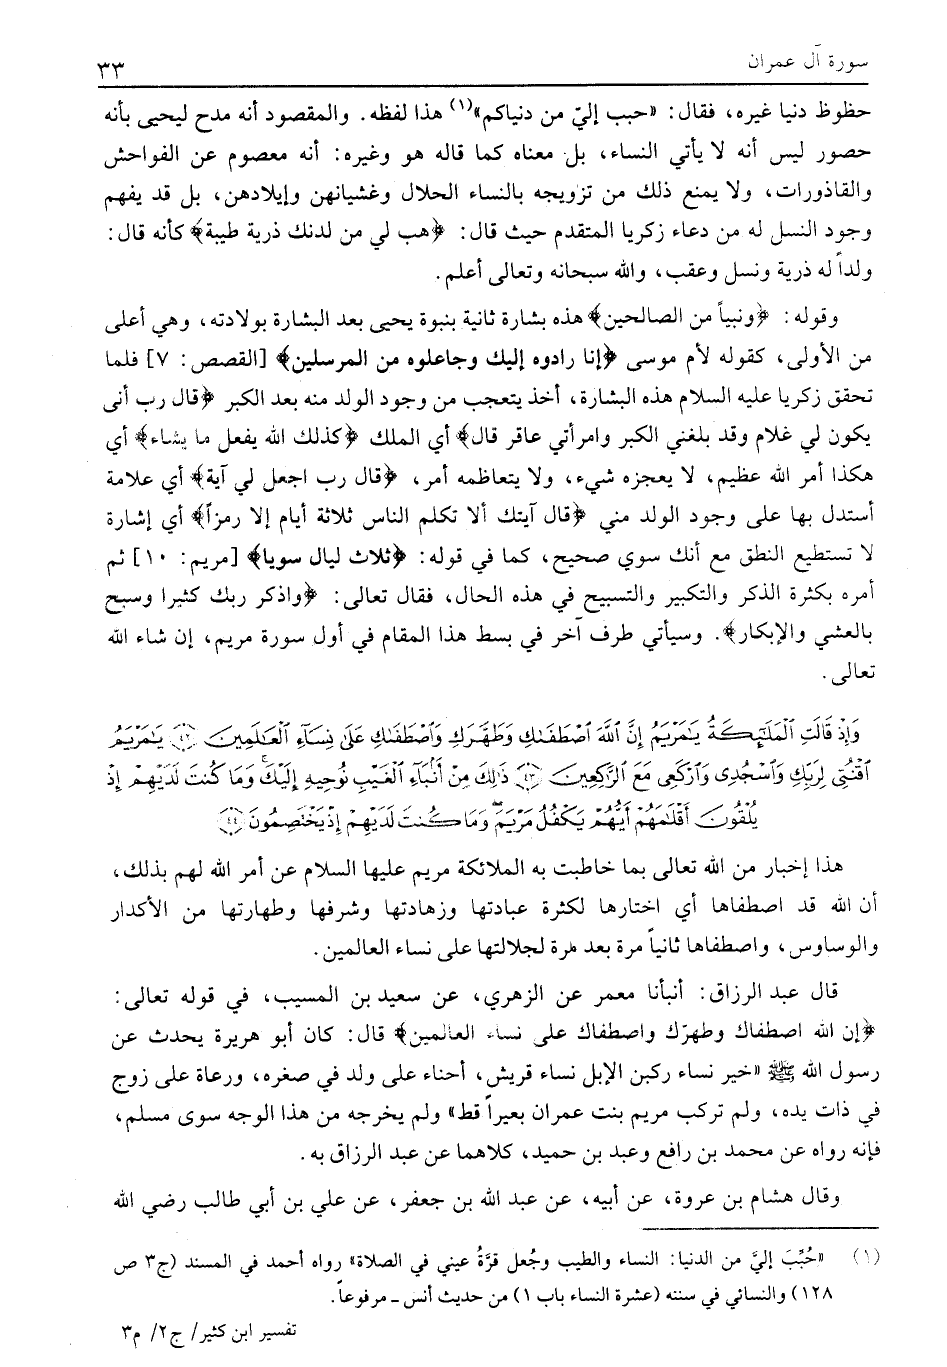 سورة آل عمران
٣٣
حظوظ دنيا غيره، فقال: «حبب إليّ من دنياكم»(١) هذا لفظه. والمقصود أنه مدح ليحيى بأنه
حصور ليس أنه لا يأتي النساء، بل معناه كما قاله هو وغيره: أنه معصوم عن الفواحش
والقاذورات، ولا يمنع ذلك من تزويجه بالنساء الحلال وغشيانهن وإيلادهن، بل قد يفهم
وجود النسل له من دعاء زكريا المتقدم حيث قال: ﴿هب لي من لدنك ذرية طيبة﴾ كأنه قال:
ولداً له ذرية ونسل وعقب، والله سبحانه وتعالى أعلم.
وقوله: ﴿ونبياً من الصالحين﴾ هذه بشارة ثانية بنبوة يحيى بعد البشارة بولادته، وهي أعلى
من الأولى، كقوله لأم موسى ﴿إنا رادوه إليك وجاعلوه من المرسلين﴾ [القصص: ٧] فلما
تحقق زكريا عليه السلام هذه البشارة، أخذ يتعجب من وجود الولد منه بعد الكبر ﴿قال رب أنى
يكون لي غلام وقد بلغني الكبر وامرأتي عاقر قال﴾ أي الملك ﴿كذلك الله يفعل ما يشاء﴾ أي
هكذا أمر الله عظيم، لا يعجزه شيء، ولا يتعاظمه أمر، ﴿قال رب اجعل لي آية﴾ أي علامة
أستدل بها على وجود الولد مني ﴿قال آيتك ألا تكلم الناس ثلاثة أيام إلا رمزاً﴾ أي إشارة
لا تستطيع النطق مع أنك سوي صحيح، كما في قوله: ﴿ثلاث ليال سويا﴾ [مريم: ١٠] ثم
أمره بكثرة الذكر والتكبير والتسبيح في هذه الحال، فقال تعالى: ﴿واذكر ربك كثيرا وسبح
بالعشي والإبكار﴾. وسيأتي طرف آخر في بسط هذا المقام في أول سورة مريم، إن شاء الله
تعالى.
وَإِذْ قَالَتِ ٱلْمَلَٰٓئِكَةُ يَٰمَرْيَمُ إِنَّ ٱللَّهَ ٱصْطَفَىٰكِ وَطَهَّرَكِ وَٱصْطَفَىٰكِ عَلَىٰ نِسَآءِ ٱلْعَٰلَمِينَ ٤٢ يَٰمَرْيَمُ
ٱقْنُتِى لِرَبِّكِ وَٱسْجُدِى وَٱرْكَعِى مَعَ ٱلرَّٰكِعِينَ ٤٣ ذَٰلِكَ مِنْ أَنۢبَآءِ ٱلْغَيْبِ نُوحِيهِ إِلَيْكَ وَمَا كُنتَ لَدَيْهِمْ إِذْ
يُلْقُونَ أَقْلَٰمَهُمْ أَيُّهُمْ يَكْفُلُ مَرْيَمَ وَمَا كُنتَ لَدَيْهِمْ إِذْ يَخْتَصِمُونَ ٤٤
هذا إخبار من الله تعالى بما خاطبت به الملائكة مريم عليها السلام عن أمر الله لهم بذلك،
أن الله قد اصطفاها أي اختارها لكثرة عبادتها وزهادتها وشرفها وطهارتها من الأكدار
والوساوس، واصطفاها ثانياً مرة بعد مرة لجلالتها على نساء العالمين.
قال عبد الرزاق: أنبأنا معمر عن الزهري، عن سعيد بن المسيب، في قوله تعالى:
﴿إن الله اصطفاك وطهرّك واصطفاك على نساء العالمين﴾ قال: كان أبو هريرة يحدث عن
رسول الله ﷺ «خير نساء ركبن الإبل نساء قريش، أحناه على ولد في صغره، ورعاة على زوج
في ذات يده، ولم تركب مريم بنت عمران بعيراً قط» ولم يخرجه من هذا الوجه سوى مسلم،
فإنه رواه عن محمد بن رافع وعبد بن حميد، كلاهما عن عبد الرزاق به.
وقال هشام بن عروة، عن أبيه، عن عبد الله بن جعفر، عن علي بن أبي طالب رضي الله
(١) «حُبِّبَ إليَّ من الدنيا: النساء والطيب وجُعل قرَّةُ عيني في الصلاة» رواه أحمد في المسند (ج٣ ص
١٢٨) والنسائي في سننه (عشرة النساء باب ١) من حديث أنس ـ مرفوعاً.
تفسير ابن كثير/ ج٢/ م٣